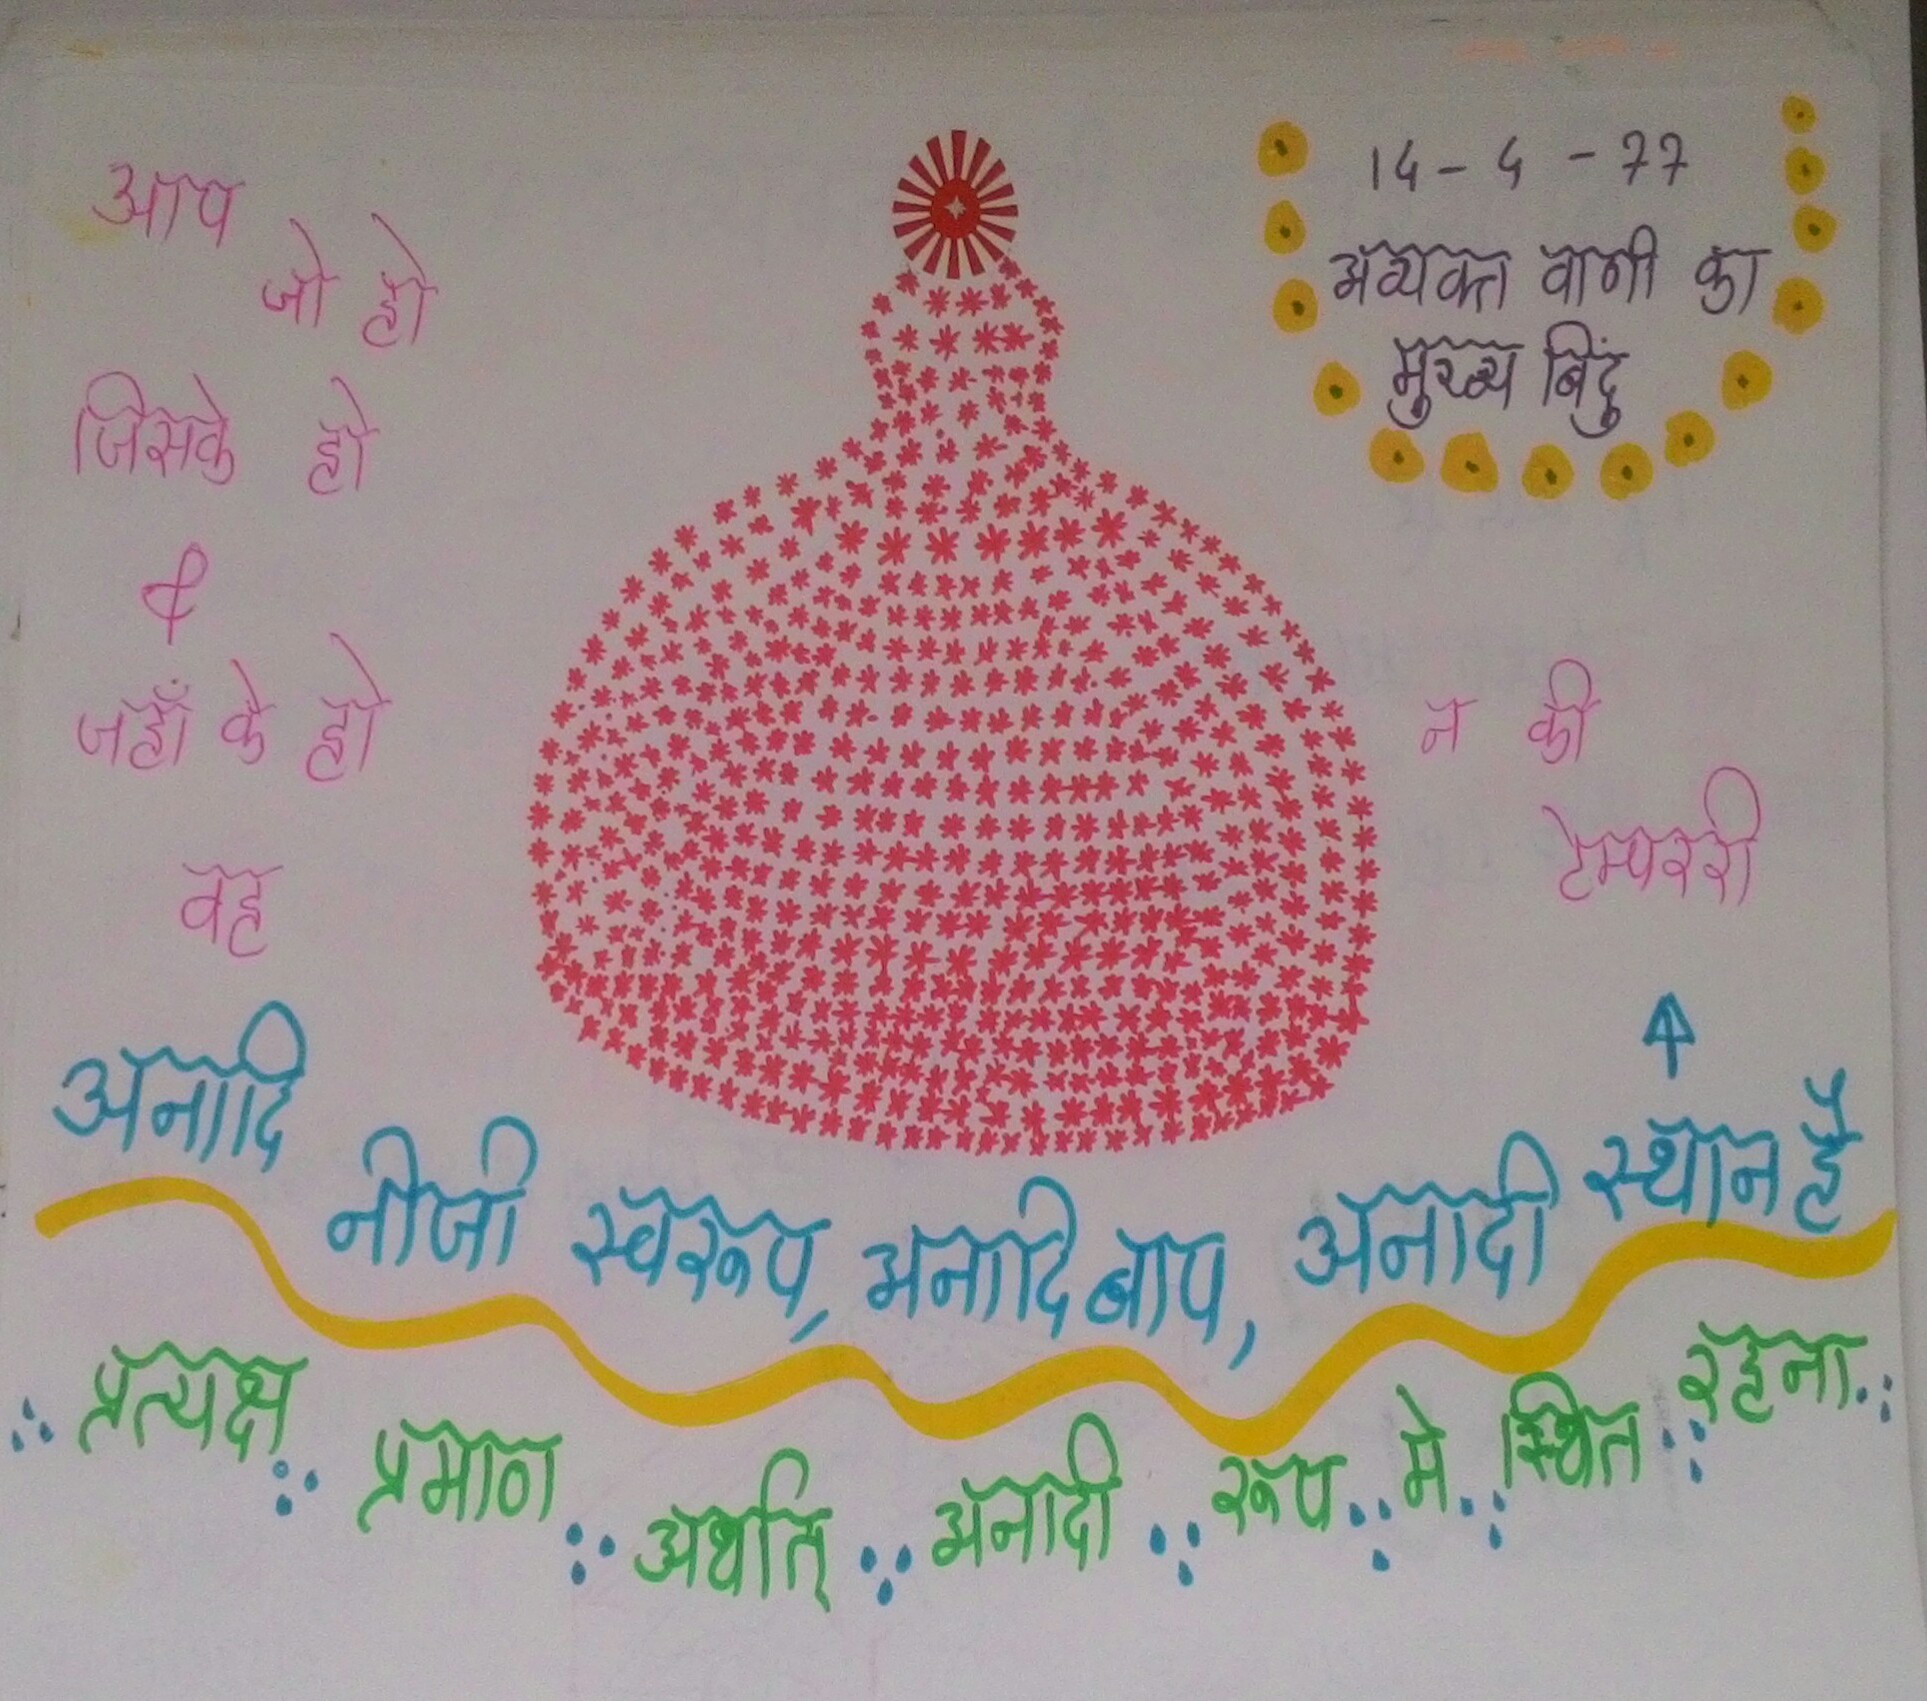 14-4-77
अव्यक्त वाणी का
मुख्य बिंदु
आप
जो हो
जिसके हो
&
जहाँ के हो
वह
न की
टेम्पररी
अनादि
नीजी स्वरूप, अनादि बाप, अनादी स्थान है
प्रत्यक्ष
प्रमाण अर्थात् अनादी रूप मे स्थित रहना